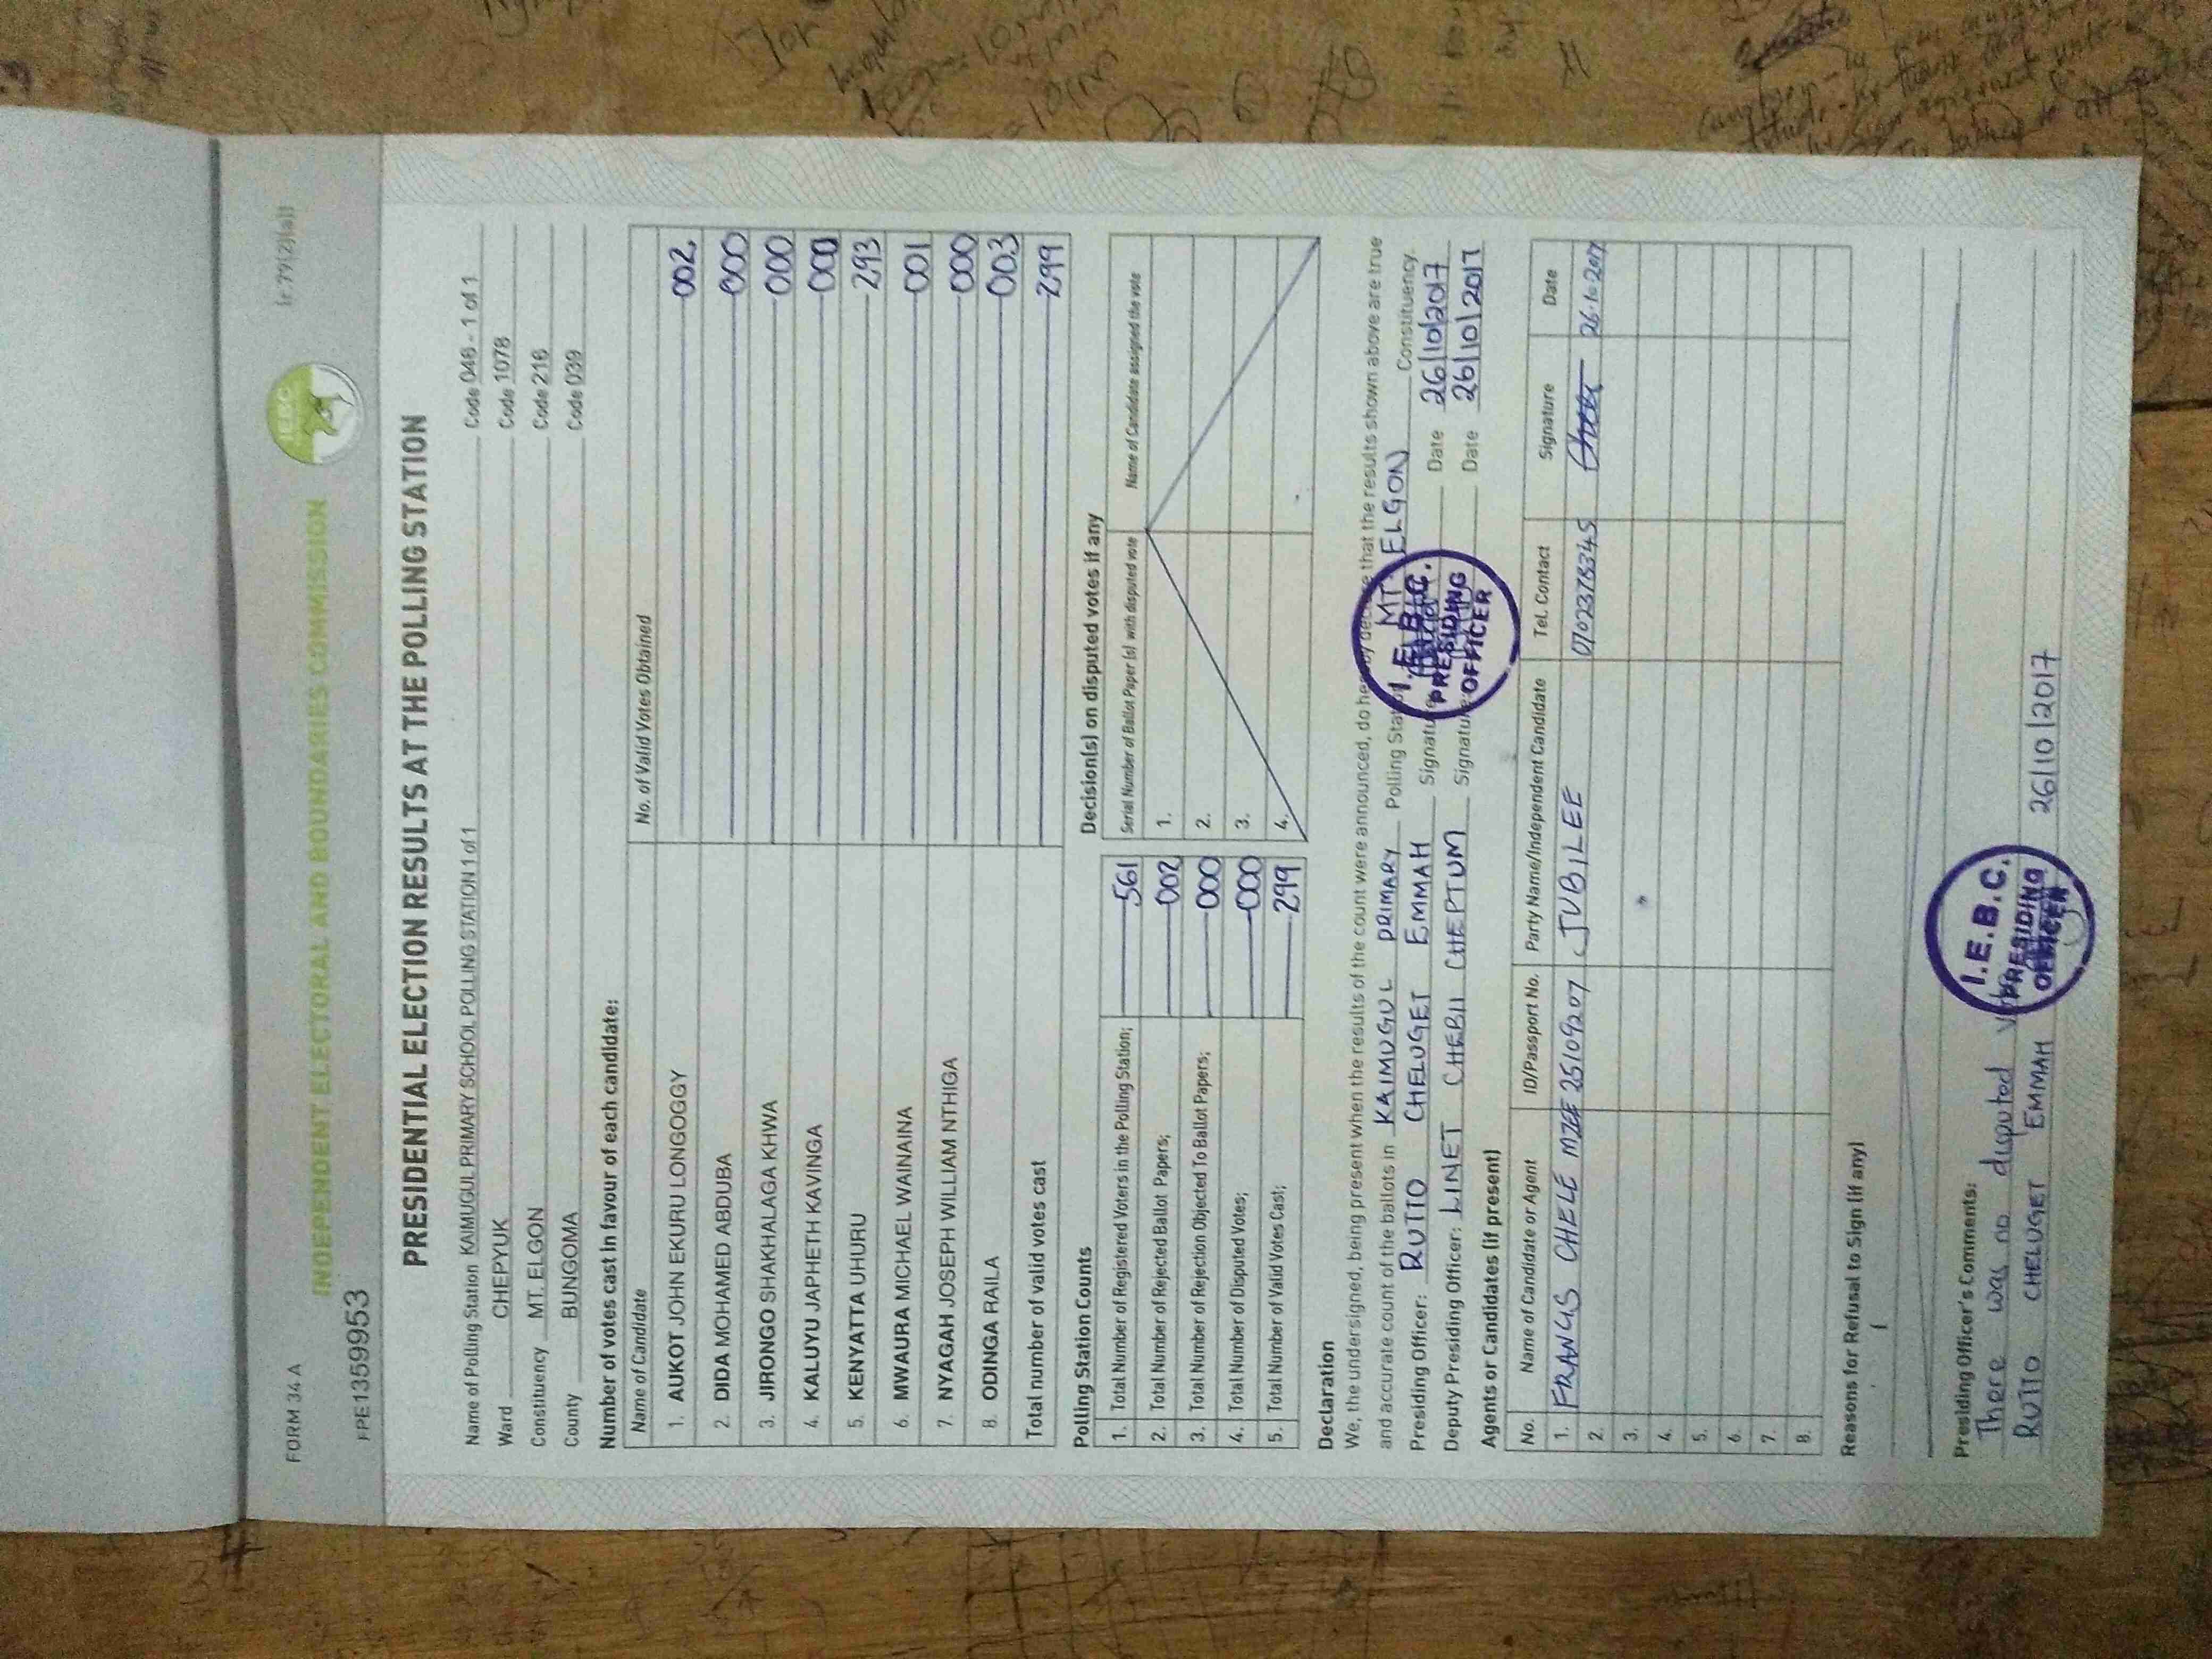 FORM 34 A
(r.79(2)(a))
INDEPENDENT ELECTORAL AND BOUNDARIES COMMISSION
IEBC
FPE1359953
PRESIDENTIAL ELECTION RESULTS AT THE POLLING STATION
Name of Polling Station KAIMUGUL PRIMARY SCHOOL POLLING STATION 1 of 1 Code 046 - 1 of 1
Ward CHEPYUK Code 1078
Constituency MT. ELGON Code 216
County BUNGOMA Code 039
Number of votes cast in favour of each candidate:
Name of Candidate No. of Valid Votes Obtained
1. AUKOT JOHN EKURU LONGOGGY 002
2. DIDA MOHAMED ABDUBA 000
3. JIRONGO SHAKHALAGA KHWA 000
4. KALUYU JAPHETH KAVINGA 000
5. KENYATTA UHURU 293
6. MWAURA MICHAEL WAINAINA 001
7. NYAGAH JOSEPH WILLIAM NTHIGA 000
8. ODINGA RAILA 003
Total number of valid votes cast 299
Polling Station Counts
1. Total Number of Registered Voters in the Polling Station; 561
2. Total Number of Rejected Ballot Papers; 002
3. Total Number of Rejection Objected To Ballot Papers; 000
4. Total Number of Disputed Votes; 000
5. Total Number of Valid Votes Cast; 299
Decision(s) on disputed votes if any
Serial Number of Ballot Paper (s) with disputed vote Name of Candidate assigned the vote
1.
2.
3.
4.
Declaration
We, the undersigned, being present when the results of the count were announced, do hereby declare that the results shown above are true
and accurate count of the ballots in KAIMUGUL PRIMARY Polling Station MT. ELGON Constituency.
Presiding Officer: RUTTO CHELUGET EMMAH Signature Date 26/10/2017
Deputy Presiding Officer: LINET CHEBII CHEPTUM Signature Date 26/10/2017
I.E.B.C.
PRESIDING
OFFICER
Agents or Candidates (if present)
No. Name of Candidate or Agent ID/Passport No. Party Name/Independent Candidate Tel. Contact Signature Date
1. FRANCIS CHELE MZEE 25109207 JUBILEE 0702378345 26.10.2017
2.
3.
4.
5.
6.
7.
8.
Reasons for Refusal to Sign (if any)
Presiding Officer's Comments:
There was no disputed
RUTTO CHELUGET EMMAH 26/10/2017
I.E.B.C.
PRESIDING
OFFICER